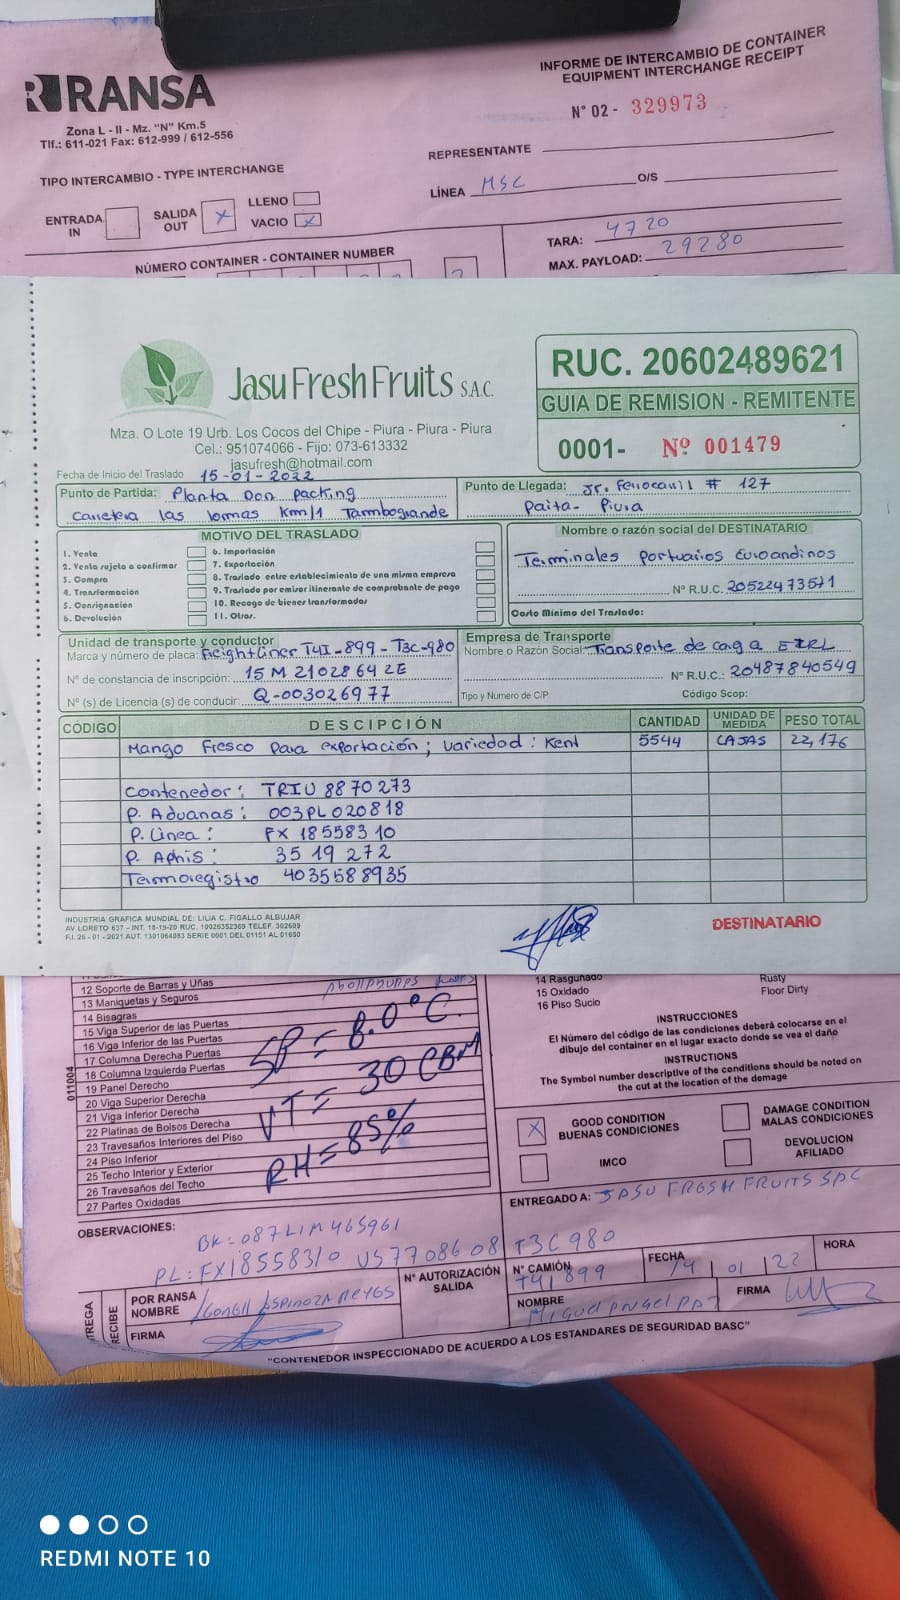 RANSA
Zona L - II - Mz. "N" Km.5
Tlf.: 611-021 Fax: 612-999 / 612-556
INFORME DE INTERCAMBIO DE CONTAINER
EQUIPMENT INTERCHANGE RECEIPT
N° 02 - 329973
REPRESENTANTE
TIPO INTERCAMBIO - TYPE INTERCHANGE
LÍNEA MSC O/S
ENTRADA IN
SALIDA OUT X
LLENO
VACIO X
TARA: 4720
MAX. PAYLOAD: 29280
NÚMERO CONTAINER - CONTAINER NUMBER
Jasu Fresh Fruits S.A.C.
Mza. O Lote 19 Urb. Los Cocos del Chipe - Piura - Piura - Piura
Cel.: 951074066 - Fijo: 073-613332
jasufresh@hotmail.com
RUC. 20602489621
GUIA DE REMISION - REMITENTE
0001- Nº 001479
Fecha de Inicio del Traslado 15-01-2022
Punto de Partida: Planta Don packing
Carretera las lomas Km/1 Tambogrande
Punto de Llegada: Jr. Ferrocarril # 127
Paita - Piura
MOTIVO DEL TRASLADO
1. Venta
2. Venta sujeta a confirmar
3. Compra
4. Transformación
5. Consignación
6. Devolución
6. Importación
7. Exportación
8. Traslado entre establecimiento de una misma empresa
9. Traslado por emisor itinerante de comprobante de pago
10. Recogo de bienes transformados
11. Otros.
Nombre o razón social del DESTINATARIO
Terminales portuarios Euroandinos
N° R.U.C. 20522473571
Costo Mínimo del Traslado:
Unidad de transporte y conductor
Marca y número de placa: Freightliner T4I-899 - T3C-980
N° de constancia de inscripción: 15 M 21028642E
N° (s) de Licencia (s) de conducir: Q-003026977
Empresa de Transporte
Nombre o Razón Social: Transporte de carga EIRL
N° R.U.C.: 20487840549
Tipo y Numero de C/P: Código Scop:
CÓDIGO DESCIPCIÓN CANTIDAD UNIDAD DE MEDIDA PESO TOTAL
Mango Fresco para exportación; variedad: Kent 5544 CAJAS 22,176
Contenedor: TRIU 8870273
P. Aduanas: 003PL020818
P. Linea: FX 18558310
P. Aphis: 3519272
Termoregistro 4035588935
INDUSTRIA GRAFICA MUNDIAL DE: LILIA C. FIGALLO ALBUJAR
AV LORETO 637 - INT. 18-19-20 RUC. 10026352369 TELEF. 302609
F.I. 26 - 01 - 2021 AUT. 1301064083 SERIE 0001 DEL 01151 AL 01650
DESTINATARIO
12 Soporte de Barras y Uñas
13 Maniquetas y Seguros
14 Bisagras
15 Viga Superior de las Puertas
16 Viga Inferior de las Puertas
17 Columna Derecha Puertas
18 Columna Izquierda Puertas
19 Panel Derecho
20 Viga Superior Derecha
21 Viga Inferior Derecha
22 Platinas de Bolsos Derecha
23 Travesaños Interiores del Piso
24 Piso Inferior
25 Techo Interior y Exterior
26 Travesaños del Techo
27 Partes Oxidadas
011004
SP = 8.0°C.
VT = 30 CBM
RH = 85%
14 Rasgunado
15 Oxidado Rusty
16 Piso Sucio Floor Dirty
INSTRUCCIONES
El Número del código de las condiciones deberá colocarse en el
dibujo del container en el lugar exacto donde se vea el daño
INSTRUCTIONS
The Symbol number descriptive of the conditions should be noted on
the cut at the location of the damage
X GOOD CONDITION
BUENAS CONDICIONES
DAMAGE CONDITION
MALAS CONDICIONES
IMCO
DEVOLUCION
AFILIADO
ENTREGADO A: JASU FRESH FRUITS SAC
OBSERVACIONES:
BK=087LIM465961
PL: FX18558310 US7708608 T3C980
RECIBE
POR RANSA
NOMBRE
FIRMA
N° AUTORIZACIÓN
SALIDA
N° CAMIÓN
T4I899
FECHA 14 | 01 | 22
HORA
NOMBRE
FIRMA
"CONTENEDOR INSPECCIONADO DE ACUERDO A LOS ESTANDARES DE SEGURIDAD BASC"
REDMI NOTE 10